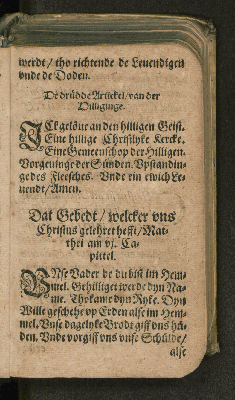 werdt / tho richtende de Leuendigen
vnde de Doden.
De drüdde Artickel / van der
Hilliginge.
ICk gelöue an den hilligen Geist.
Eine hillige Christlyke Kercke.
Eine Gemeenschop der Hilligen.
Vorgeuinge der Sünden. Vpstandin-
ge des Flesches. Vnde ein ewich Le-
uendt / Amen.
Dat Gebedt / welcker vns
Christus gelehret hefft / Mat-
thei am vj. Ca-
pittel.
VNse Vader de du bist im Hem-
mel. Gehilliget werde dyn Na-
me. Thokame dyn Ryke. Dyn
Wille geschehe vp Erden alse im Hem-
mel. Vnse dagelyke Brodt giff vns hü-
den. Vnde vorgiff vns vnse Schülde /
alse